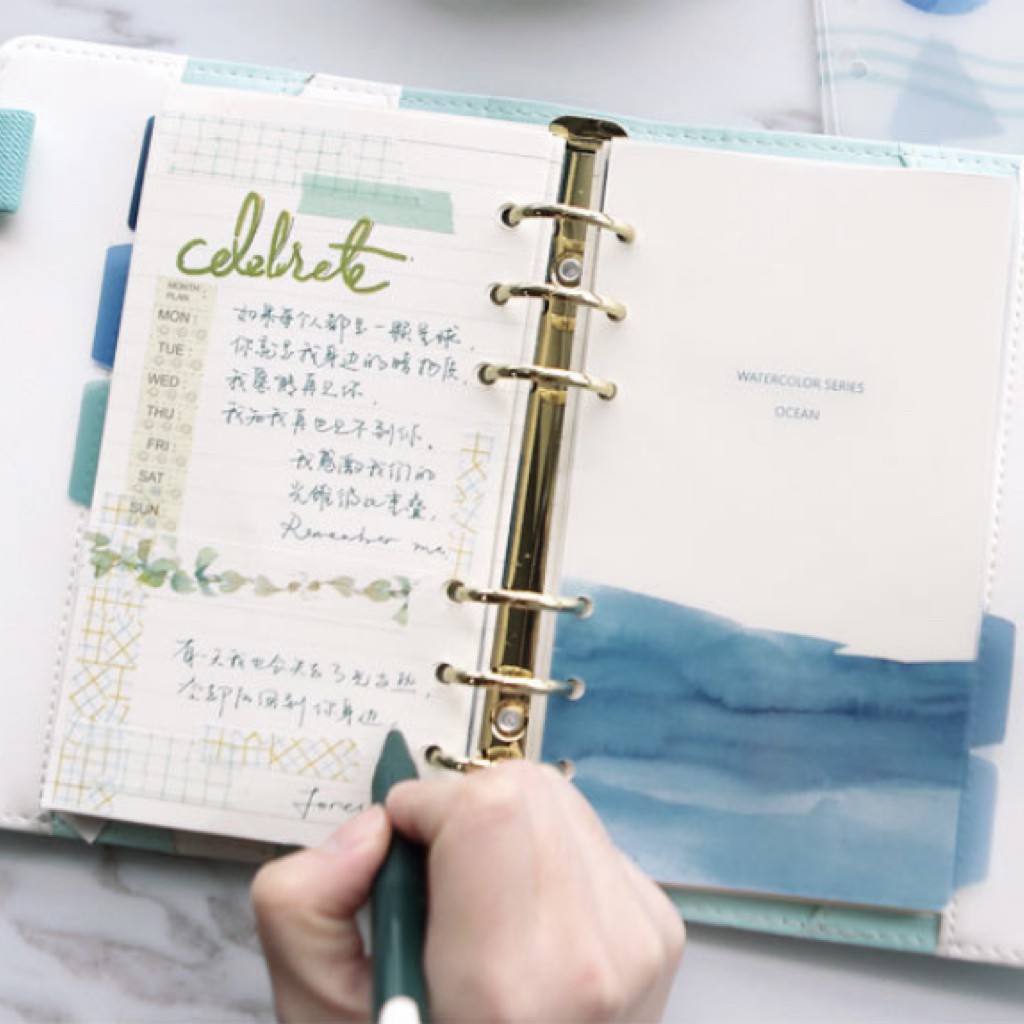 celebrate
MONTH PLAN :
MON :
TUE :
WED :
THU :
FRI :
SAT
SUN
如果每个人都是一颗星球,
你就是我身边的暗物质,
我愿能再见你,
我知我再也见不到你,
我愿
我们的
光锥仍
重叠,
Remember me.
有一天我也会失去了光
全部
你身边,
WATERCOLOR SERIES
OCEAN